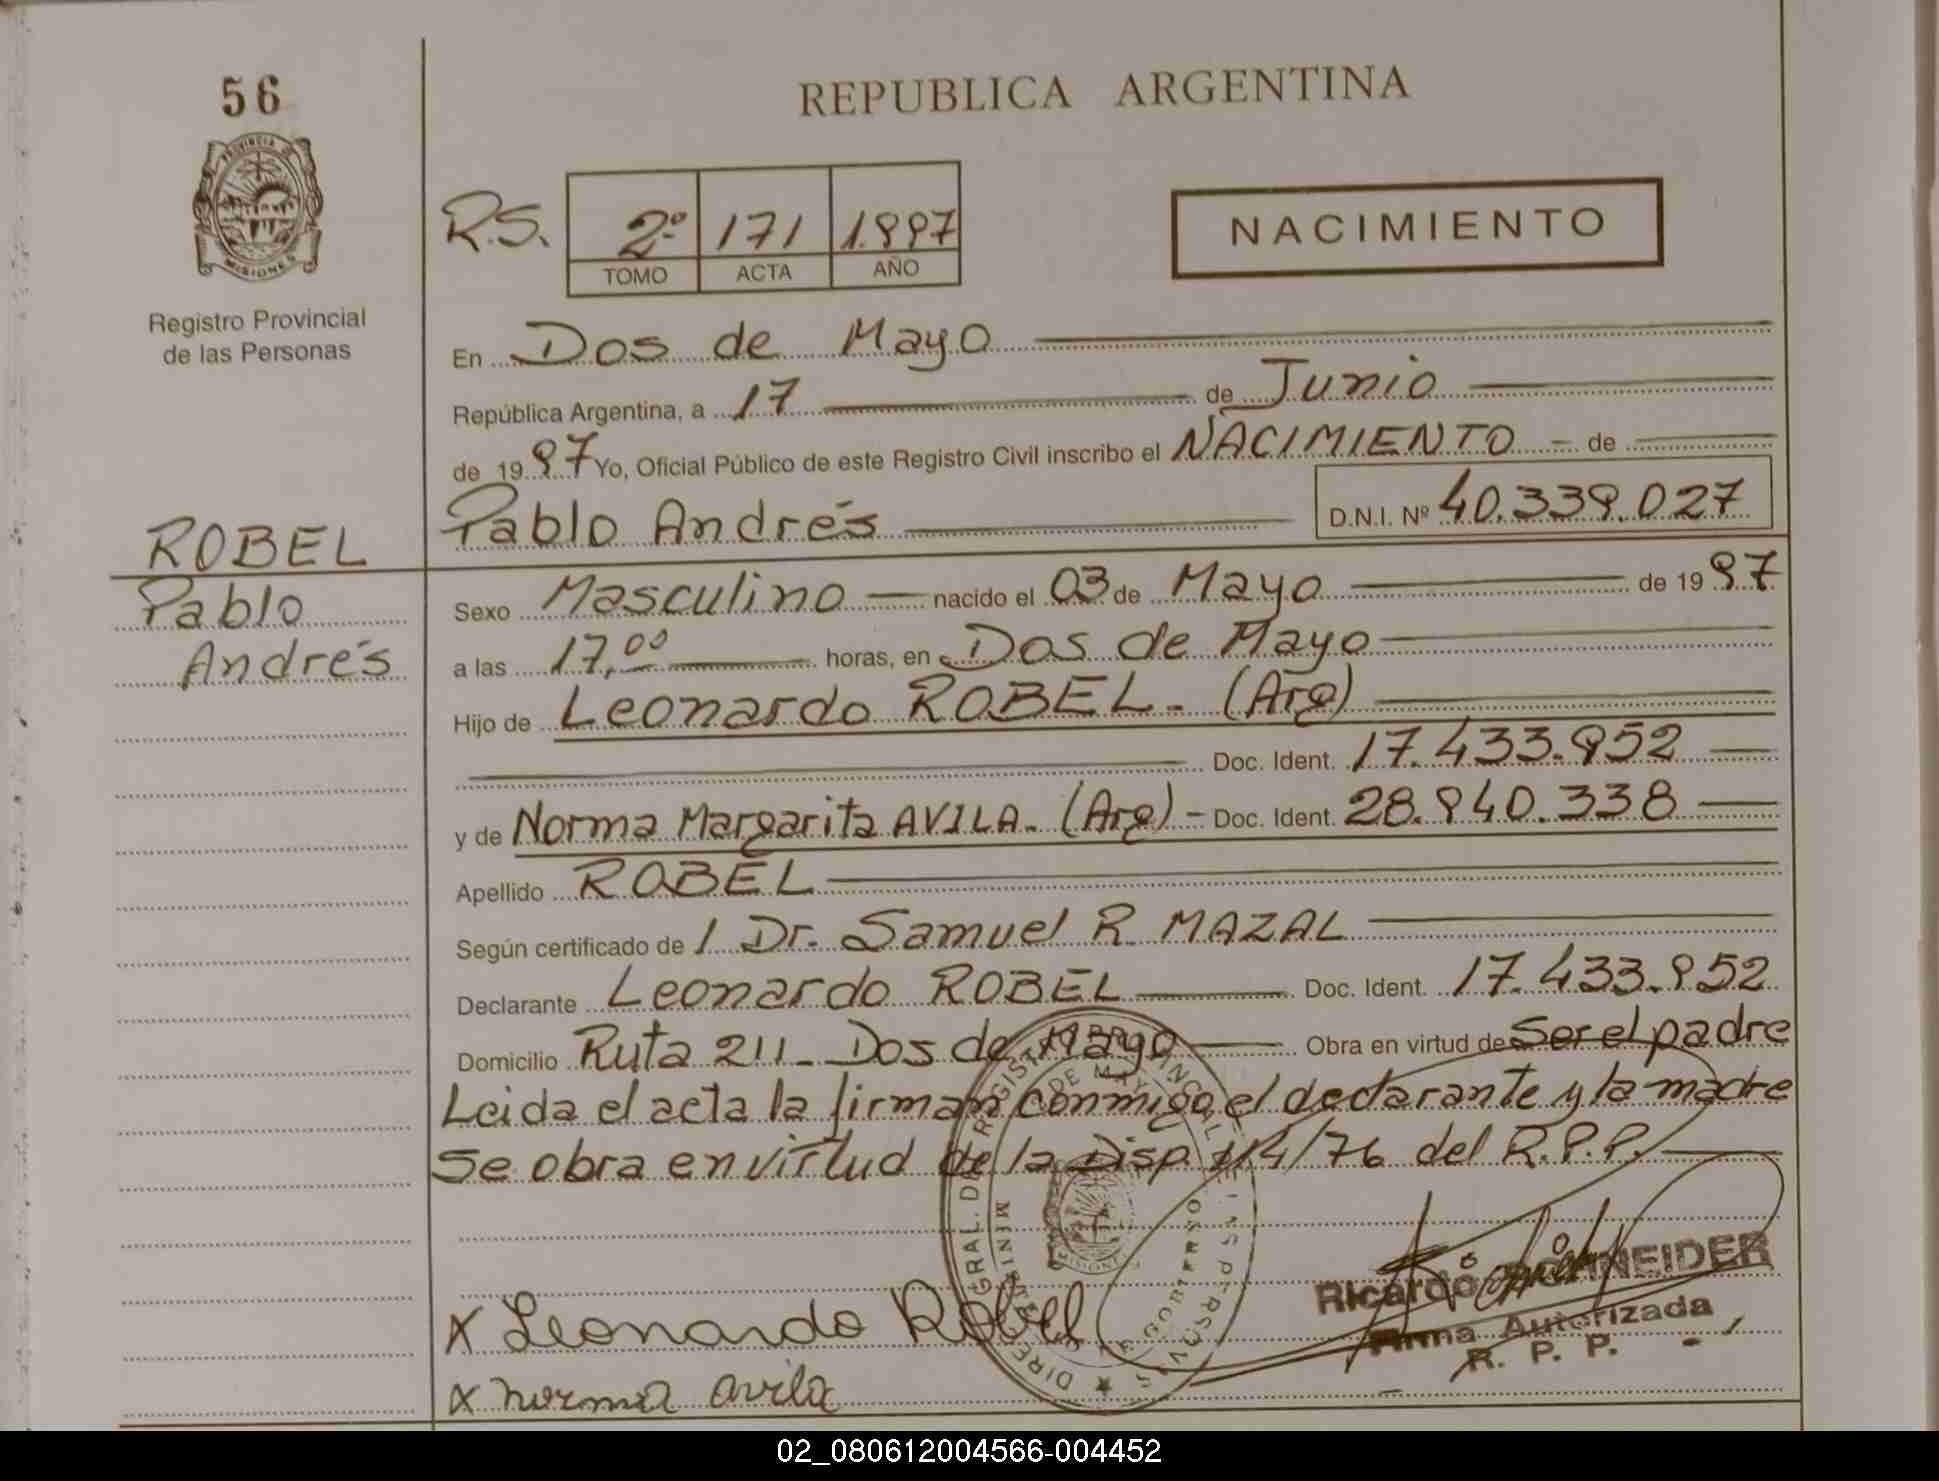 56
REPUBLICA ARGENTINA
PROVINCIA DE
MISIONES
Registro Provincial
de las Personas
R.S.
2º 171 1.997
TOMO ACTA AÑO
NACIMIENTO
En Dos de Mayo
República Argentina, a 17 de Junio
de 1997 Yo, Oficial Público de este Registro Civil inscribo el NACIMIENTO - de
Pablo Andrés D.N.I. Nº 40.339.027
ROBEL
Pablo
Andrés
Sexo Masculino nacido el 03 de Mayo de 1997
a las 17,00 horas, en Dos de Mayo
Hijo de Leonardo ROBEL - (Arg)
Doc. Ident. 17.433.952
y de Norma Margarita AVILA - (Arg) - Doc. Ident. 28.940.338
Apellido ROBEL
Según certificado de / Dr. Samuel R. MAZAL
Declarante Leonardo ROBEL Doc. Ident. 17.433.952
Domicilio Ruta 211 - Dos de Mayo Obra en virtud de Ser el padre
Leida el acta la firman conmigo el declarante y la madre
Se obra en virtud de la Disp. 1/4/76 del R.P.P.
x Leonardo Robel
x norma avila
Ricardo SCHNEIDER
Firma Autorizada
R. P. P.
02_080612004566-004452